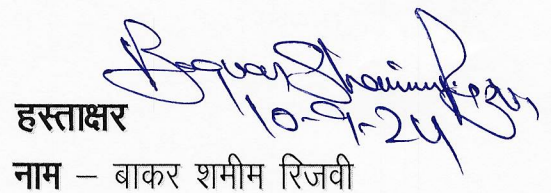 Baquar Shamim Rizvi
10-9-24
हस्ताक्षर
नाम – बाकर शमीम रिजवी